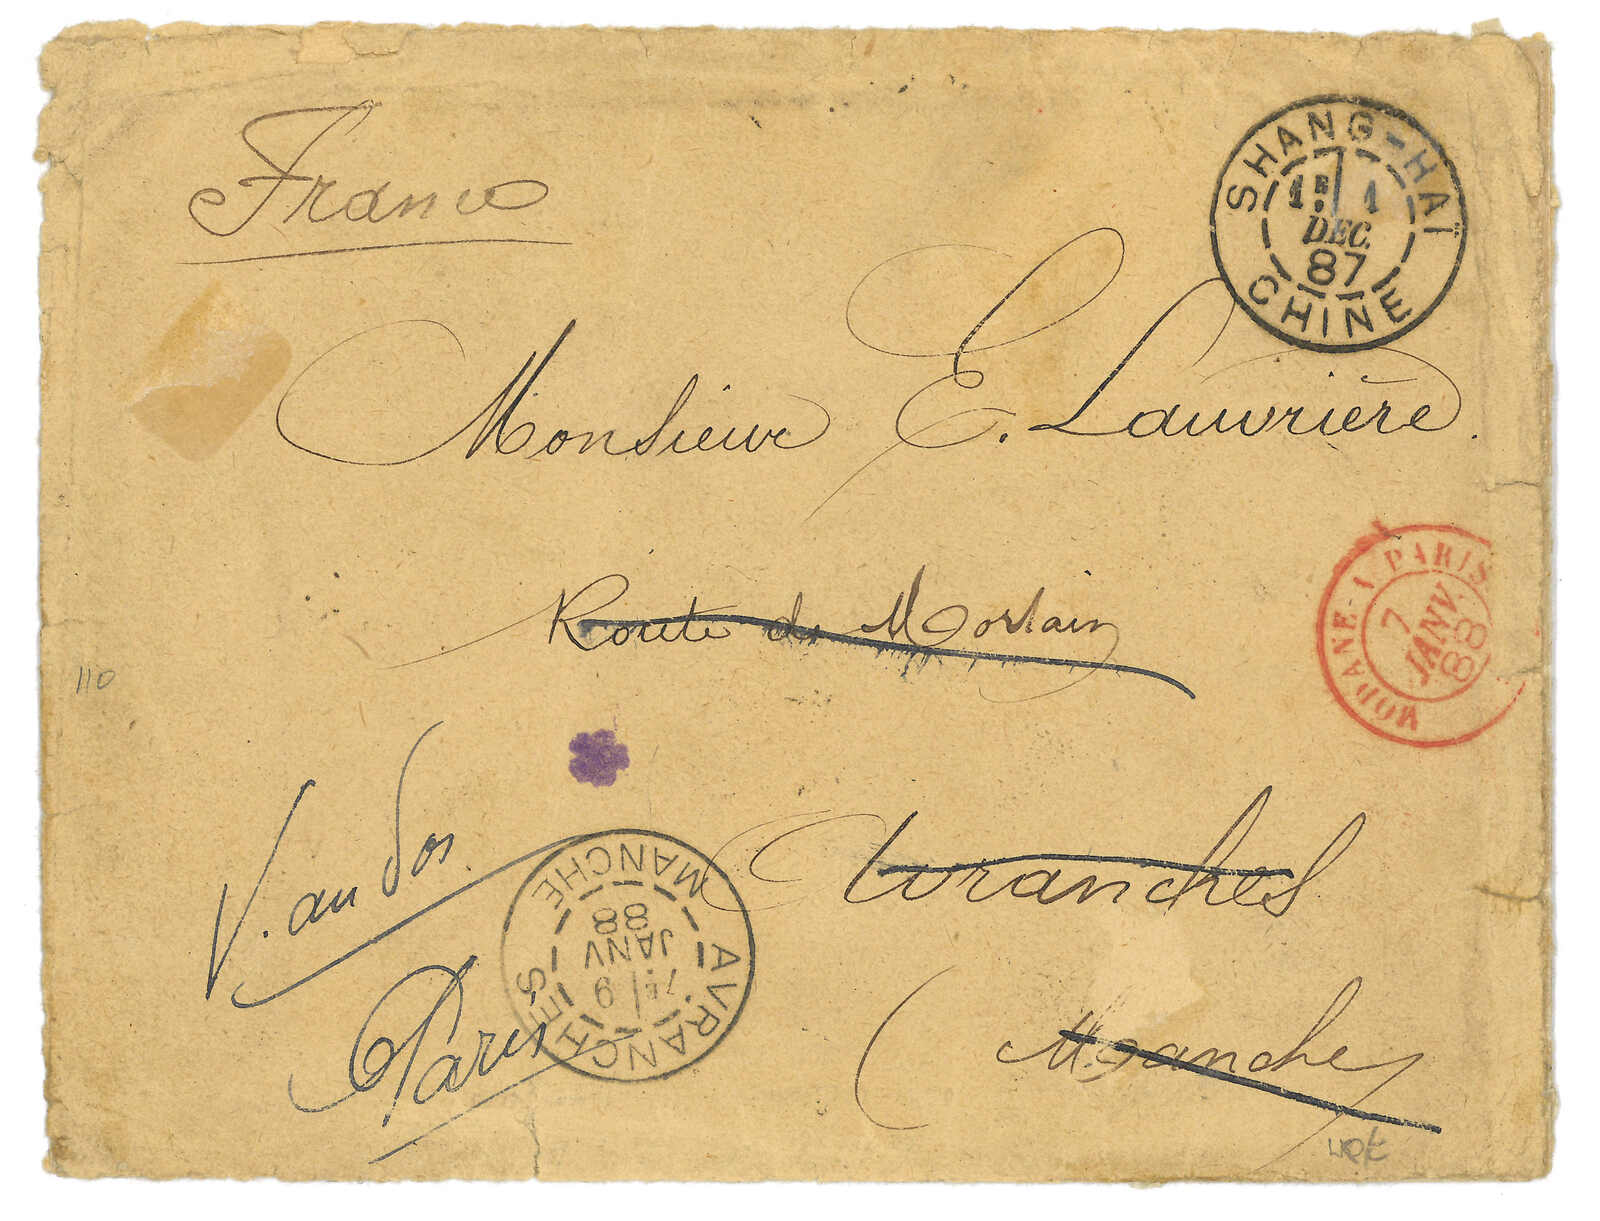 France
SHANG-HAÏ
1E 1
DEC.
87
CHINE
Monsieur E. Lauvrière.
Route de Mortain
MODANE-A-PARIS
7
JANV.
88
110
Avranches
(Manche)
V. au dos
Paris
AVRANCHES
7E 9
JANV
88
MANCHE